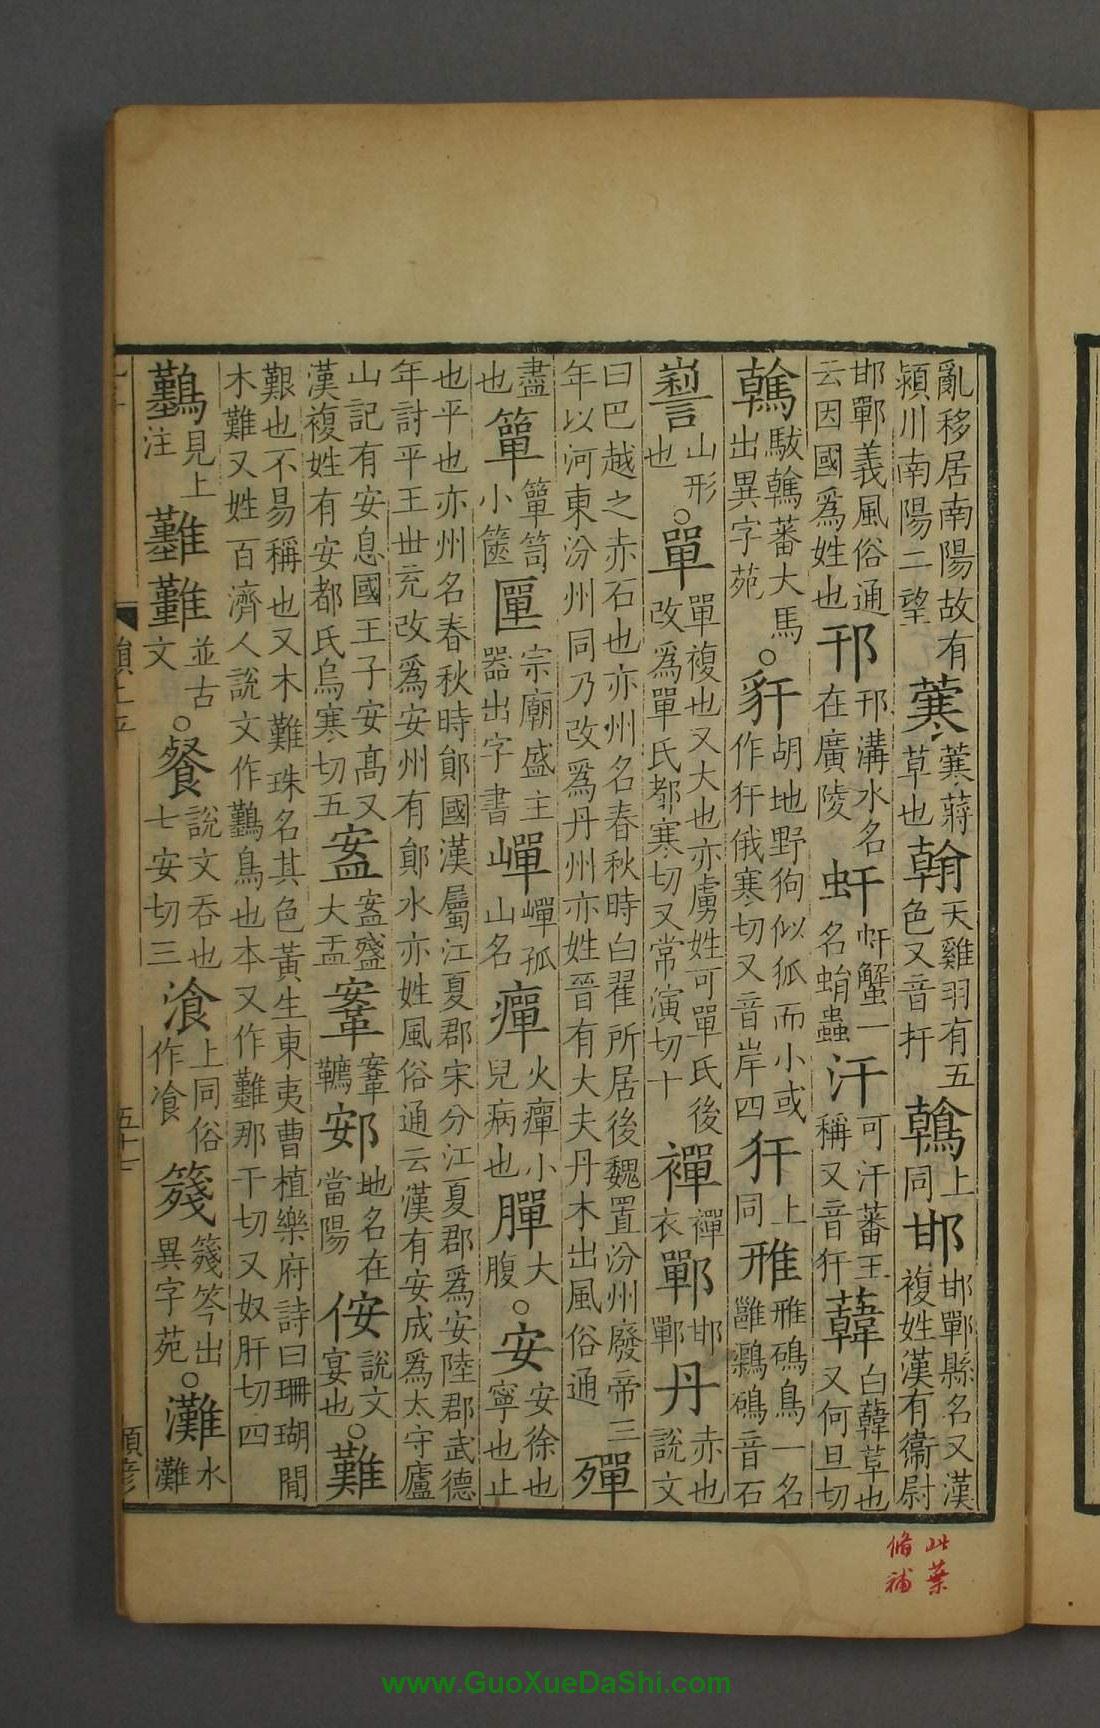 亂移居南陽故有潁川南陽二望𦽄𦽄蔣草也翰天雞羽有五色又音捍鶾上同邯邯鄲縣名又漢複姓漢有衞尉
邯鄲義風俗通云因國爲姓也邗邗溝水名在廣陵虷虷蟹一名蛸蟲汗可汗蕃王稱又音犴䕿白䕿草也又何旦切
䮧駊䮧蕃大馬出異字苑○豻胡地野狗似狐而小或作犴俄寒切又音岸四犴上同雃雃鳽鳥一名雝𪆫鳽音石
山形也○單單複也又大也亦虜姓可單氏後改爲單氏都寒切又常演切十襌襌衣鄲邯鄲丹赤也說文
曰巴越之赤石也亦州名春秋時白翟所居後魏置汾州廢帝三年以河東汾州同乃改爲丹州亦姓晉有大夫丹木出風俗通殫
盡也簞簞笥小篋匰宗廟盛主器出字書嘽嘽孤山名癉火癉小兒病也膻大腹○安安徐也寧也止
也平也亦州名春秋時鄖國漢屬江夏郡宋分江夏郡爲安陸郡武德年討平王世充改爲安州有鄖水亦姓風俗通云漢有安成爲太守廬
山記有安息國王子安髙又漢複姓有安都氏烏寒切五盫盫盞大盂鞌鞌韉䢿地名在當陽侒說文宴也○難
艱也不易稱也又木難珠名其色黃生東夷曹植樂府詩曰珊瑚間木難又姓百濟人說文作鸛鳥也本又作難那干切又奴肝切四
鸛見上注難難並古文○餐說文吞也七安切三湌上同俗作飡𥴈𥴈笒出異字苑○灘水灘
五十七
此葉
脩補
www.GuoXueDaShi.com